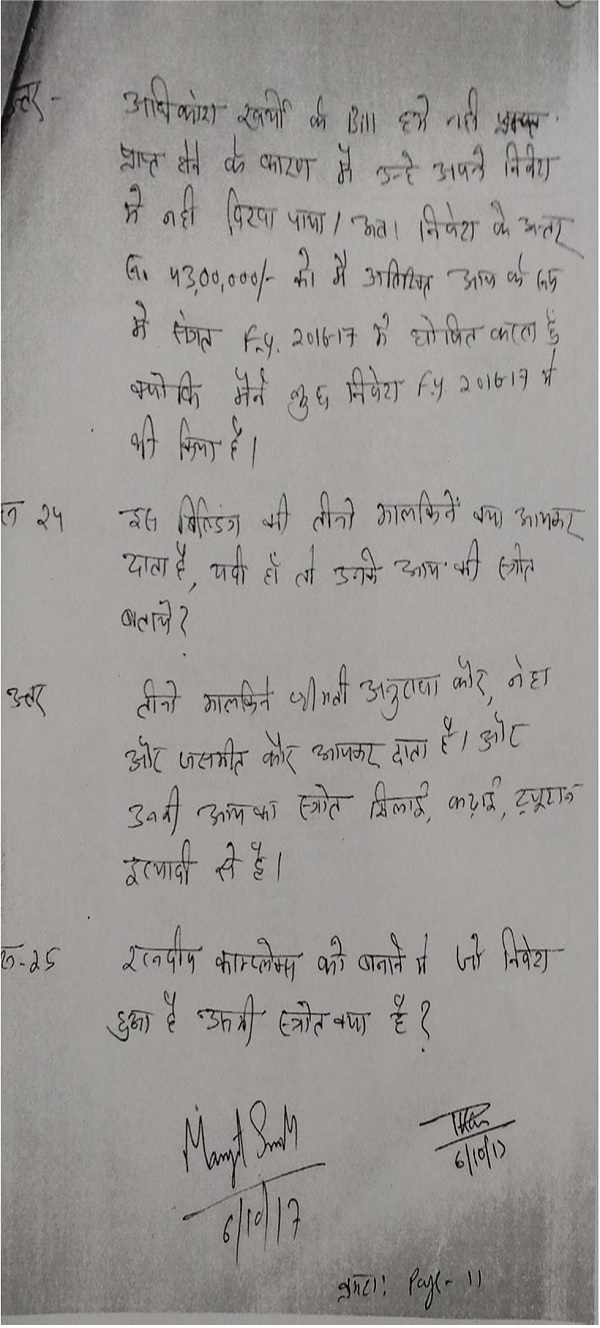 उत्तर - अधिकांश खर्चो के Bill हमे नही
प्राप्त होने के कारण मैं उन्हे अपने निवेश
मे नही दिखा पाया। अतः निवेश के अन्तर
Rs. 43,00,000/- को मैं अतिरिक्त आय के रूप
मे संगत F.Y. 2016-17 मे घोषित करता हूँ
क्योकि मैने कुछ निवेश F.Y. 2016-17 मे
भी किया है।
24 इस बिल्डिंग की तीनो मालकिनें क्या आयकर
दाता है, यदी हाँ तो उनके आय की स्त्रोत
बताये?
उत्तर तीनो मालकिने श्रीमती अनुराधा कौर, नेहा
और जसमीत कौर आयकर दाता है। और
उनकी आय का स्त्रोत सिलाई, कढ़ाई, ट्यूशन
इत्यादी से है।
25 रत्नदीप काम्प्लेक्स को बनाने मे जो निवेश
हुआ है उसकी स्त्रोत क्या है?
Manjit Singh
6/10/17
6/10/17
क्रमशः Page - 11